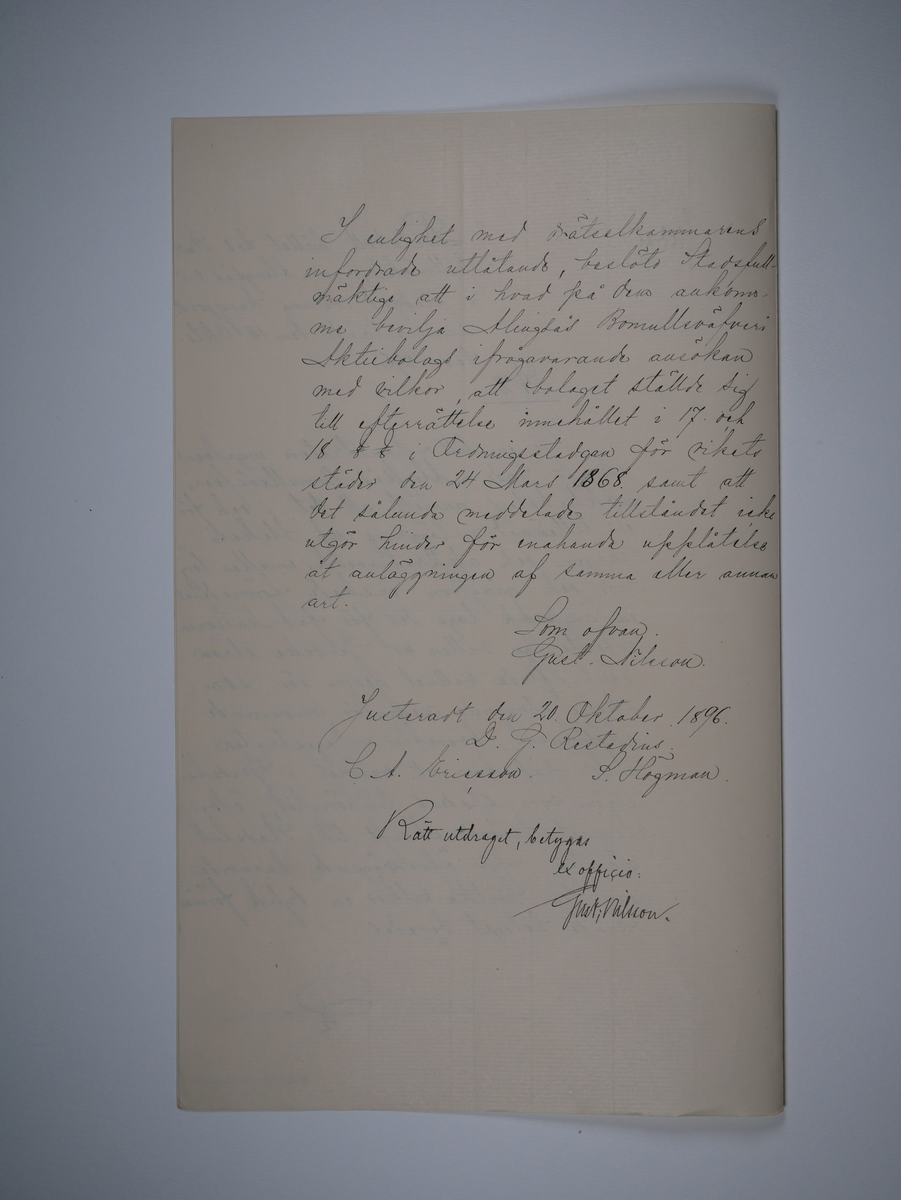 I enlighet med drätselkammarens
infordrade utlåtande, beslöto Stadsfull-
mäktige att i hvad på dem ankom-
me bevilja Alingsås Bomullsväfveri
Aktiebolags ifrågavarande ansökan
med vilkor, att bolaget ställde sig
till efterrättelse innehållet i 17. och
18 § § i Ordningsstadgan för rikets
städer den 24 Mars 1868. samt att
det sålunda meddelade tillståndet icke
utgör hinder för enahanda upplåtelse
åt anläggningen af samma eller annan
art.
Som ofvan.
Gust. Nilsson.
Justeradt den 20. Oktober 1896.
D. G. Restadius.
C. A. Ericsson. S. Högman.
Rätt utdraget, betygas
ex officio:
Gust. Nilsson.